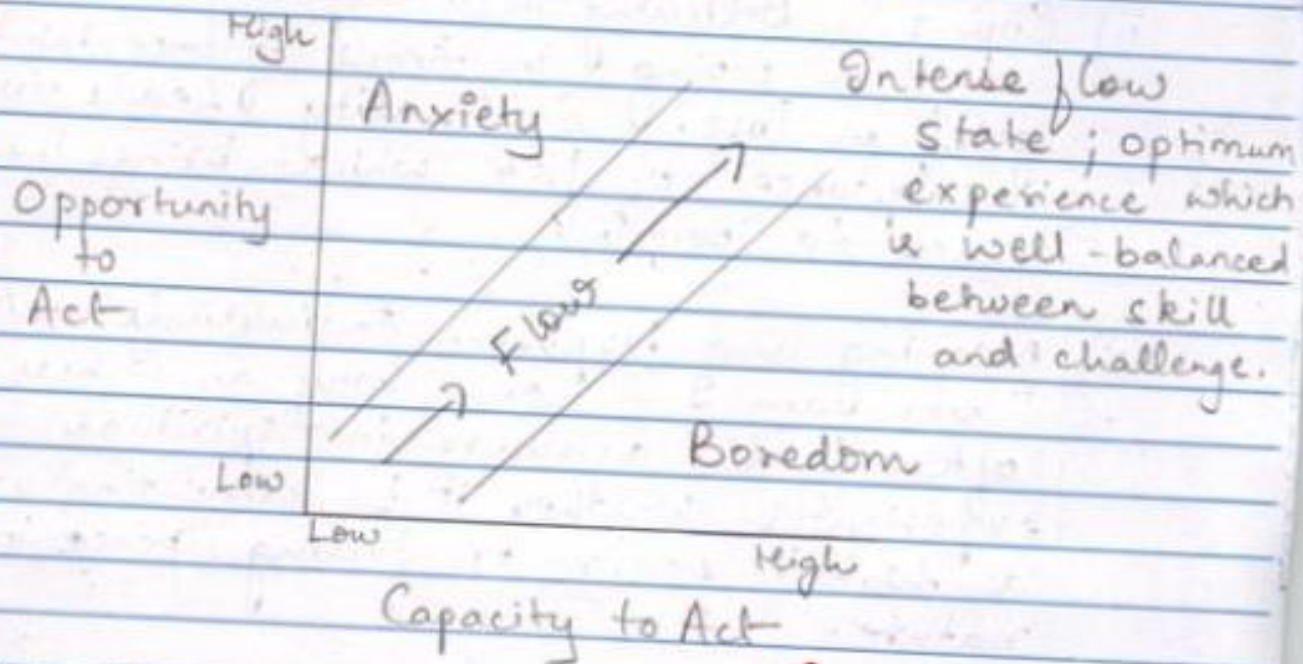 High
Anxiety
Intense flow
state; optimum
experience which
is well-balanced
between skill
and challenge.
Opportunity
to
Act
Flow
Boredom
Low
Low
High
Capacity to Act